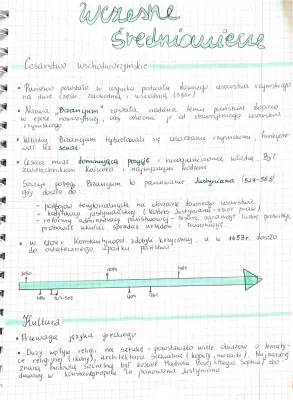 Wczesne
Średniowiecze
Cesarstwo wschodniorzymskie
• Państwo powstało w wyniku podziału dawnego cesarstwa rzymskiego
na dwie części: zachodnią i wschodnią (395r)
• Nazwa „Bizancjum" została nadana temu państwu dopiero
w epoce nowożytnej, aby odróżnić je od starożytnego cesarstwa
rzymskiego
• Władcy Bizancjum tytułowali się cesarzami rzymskimi,
senat
• Cesarz miał dominującą pozycję i nieograniczoną władzę. Był
zwierzchnikiem kościoła i najwyższym sędzią
Szczyt potęgi Bizancjum to panowanie Justyniana (527-565)
gdy doszło do:
- podbojów terytorialnych na obszarze dawnego cesarstwa
- kodyfikacji justyniańskiej (Kodeks Justyniana - zbiór praw)
- reformy administracji państwowej
próbował ukrócić sprzedaż urzędów i
• w 1204r Konstantynopol zdobyli krzyżowcy, a w 1453r. doszło
do ostatecznego upadku państwa
395r
527-565
1054
1204
1453
Kultura
• Przewaga języka greckiego
• Duży wpływ religii na sztukę - powstawało wiele obrazów o tematy-
ce religijnej (ikony), architektura sakralna (kopuły, mozaiki). Najbardziej
znaną budowlą sakralną był kościół Mądrości Bożej (Hagia Sophia) zbu-
dowany w Konstantynopolu za panowania Justyniana